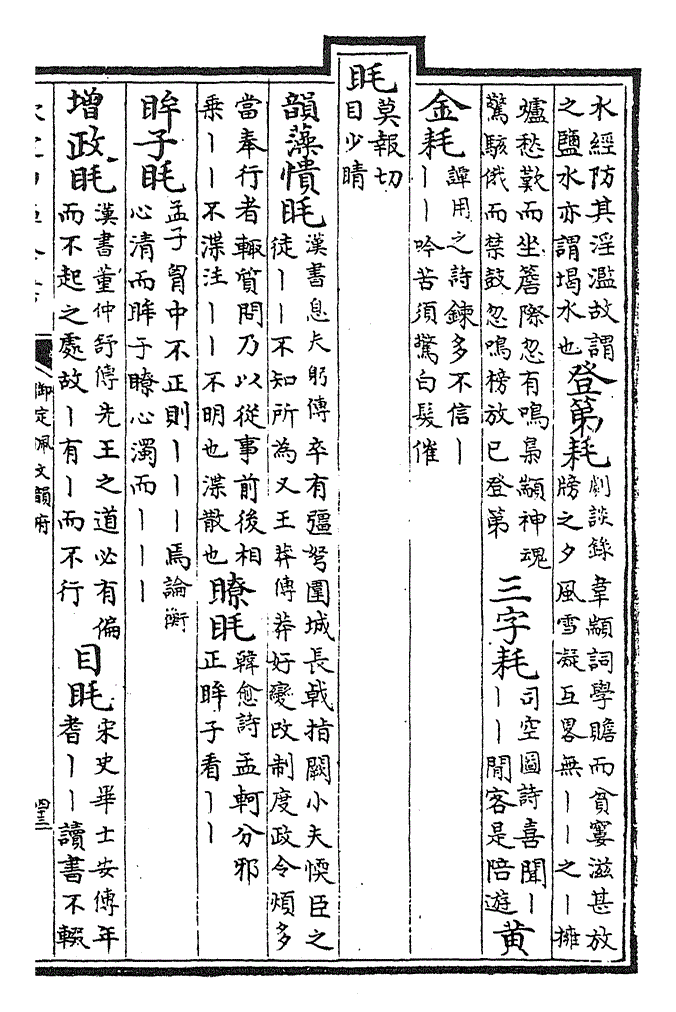 水經防其淫濫故謂
之鹽水亦謂堨水也
登第耗
劇談錄韋顓詞學贍而貧窶滋甚放
牓之夕風雪凝互畧無丨丨之丨擁
爐愁歎而坐簷際忽有鳴梟顓神魂
驚駭俄而禁鼓忽鳴榜放已登第
三字耗
司空圖詩喜聞丨
丨丨閒客是陪遊
黄
金耗
譚用之詩鍊多不信丨
丨丨吟苦須驚白髮催
眊
莫報切
目少睛
韻藻憒眊
漢書息夫躬傳卒有彊弩圍城長戟指闕小夫愞臣之
徒丨丨不知所為又王莽傳莽好變改制度政令煩多
當奉行者輙質問乃以從事前後相
乘丨丨不渫注丨丨不明也渫散也
瞭眊
韓愈詩孟軻分邪
正眸子看丨丨
眸子眊
孟子胷中不正則丨丨丨焉論衡
心清而眸子瞭心濁而丨丨丨
增政眊
漢書董仲舒傳先王之道必有偏
而不起之處故丨有丨而不行
目眊
宋史畢士安傳年
耆丨丨讀書不輟
御定佩文韻府